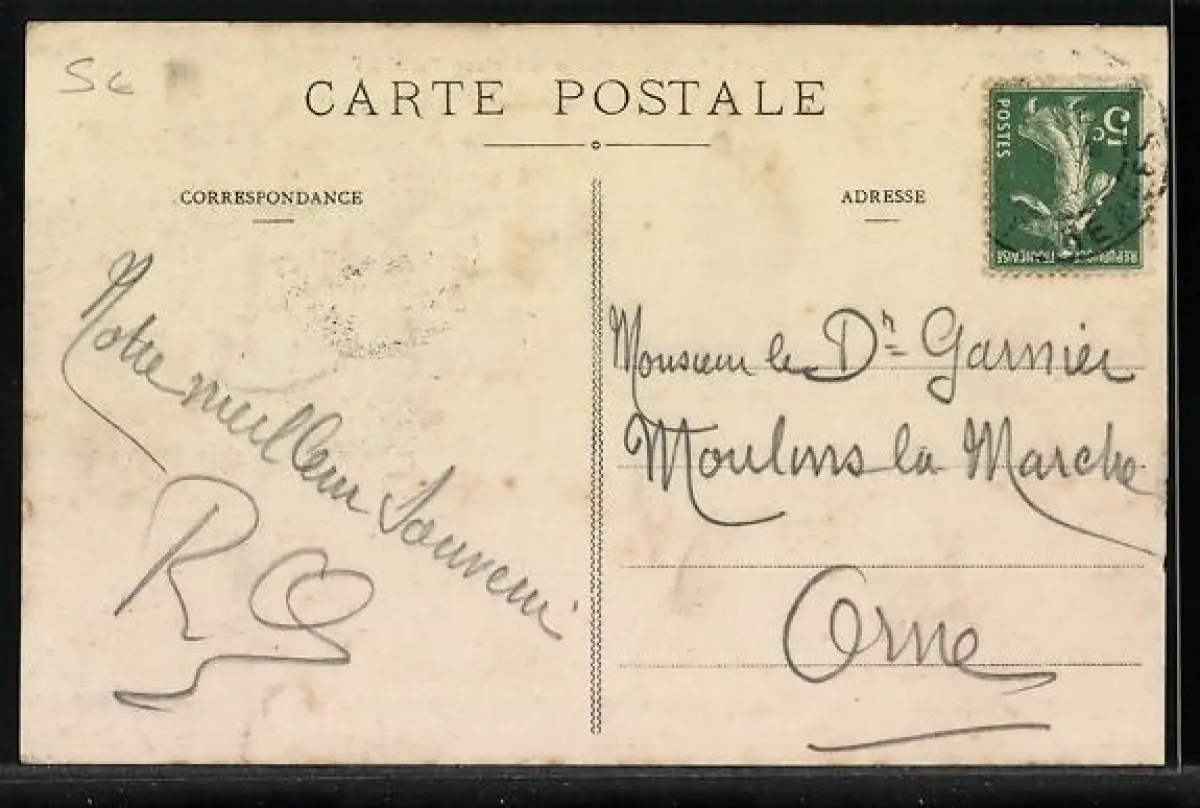 Sc
CARTE POSTALE
CORRESPONDANCE
ADRESSE
5c
POSTES
REPUBLIQUE FRANÇAISE
Notre meilleur Souvenir
R
Monsieur le Dr Garnier
Moulins la Marche
Orne